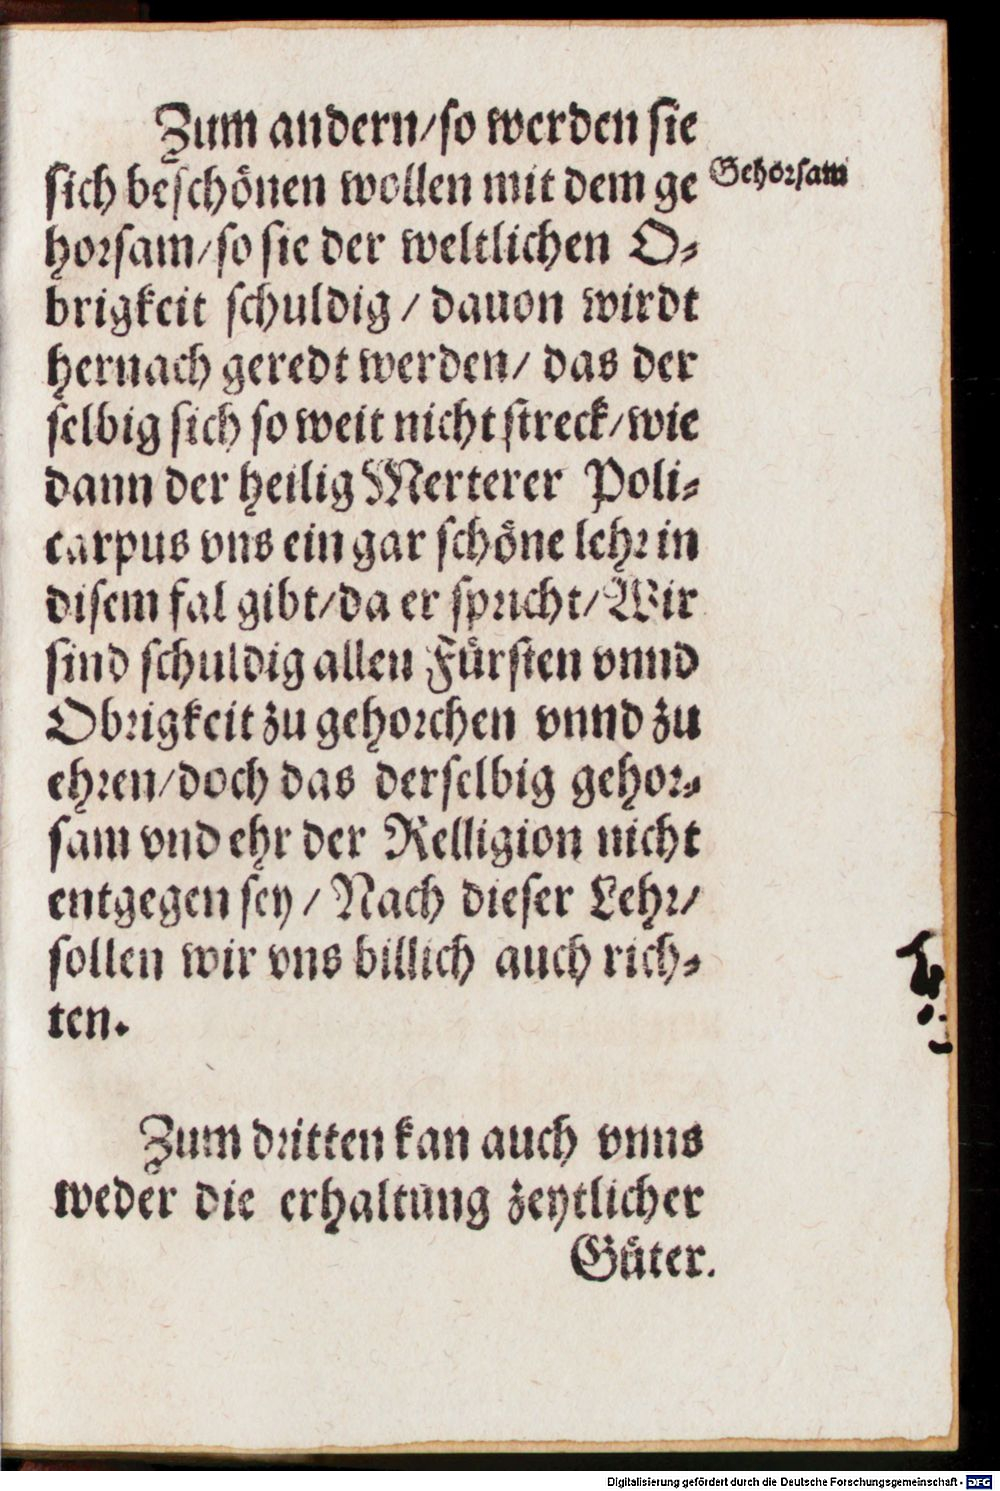 Zum andern/so werden sie
sich beschönen wollen mit dem ge
Gehorsam
horsam/so sie der weltlichen O-
brigkeit schuldig/dauon wirdt
hernach geredt werden/ das der
selbig sich so weit nicht streck/wie
dann der heilig Merterer Poli-
carpus vns ein gar schöne lehr in
disem fal gibt/da er spricht/Wir
sind schuldig allen Fürsten vnnd
Obrigkeit zu gehorchen vnnd zu
ehren/doch das derselbig gehor-
sam vnd ehr der Relligion nicht
entgegen sey/Nach dieser Lehr/
sollen wir vns billich auch rich-
ten.
Zum dritten kan auch vnns
weder die erhaltung zeytlicher
Güter.
Digitalisierung gefördert durch die Deutsche Forschungsgemeinschaft - DFG